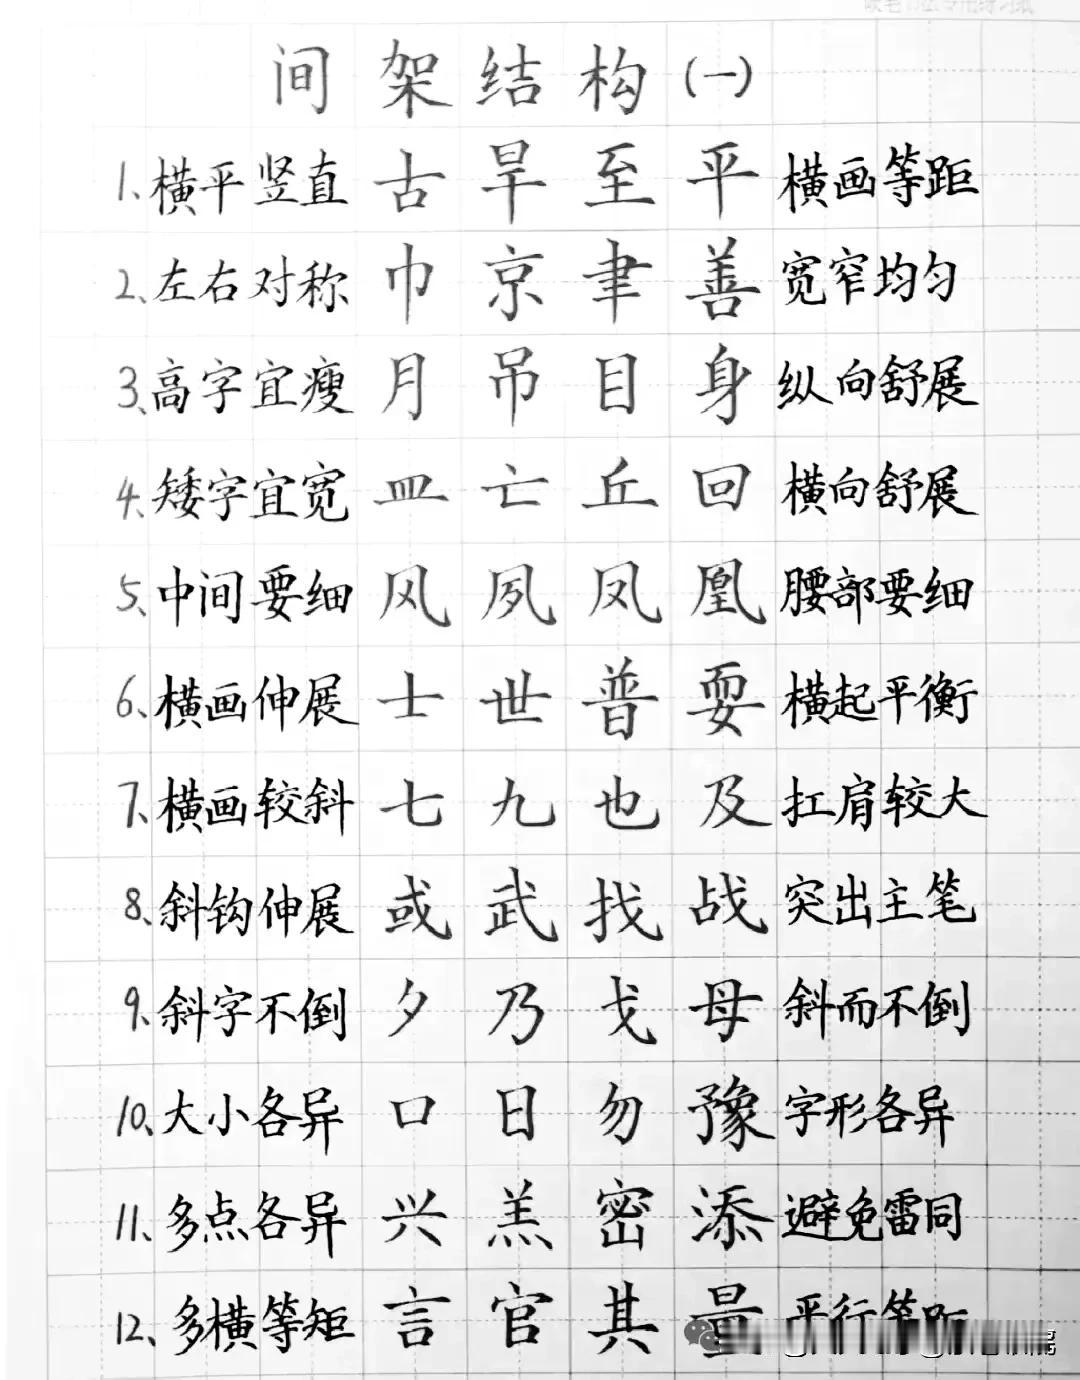 间架结构(一)
1、横平竖直 古 旱 至 平 横画等距
2、左右对称 巾 京 聿 善 宽窄均匀
3、高字宜瘦 月 吊 目 身 纵向舒展
4、矮字宜宽 皿 亡 丘 回 横向舒展
5、中间要细 风 夙 凤 凰 腰部要细
6、横画伸展 士 世 普 耍 横起平衡
7、横画较斜 七 九 也 及 扛肩较大
8、斜钩伸展 或 武 找 战 突出主笔
9、斜字不倒 夕 乃 戈 母 斜而不倒
10、大小各异 口 日 勿 豫 字形各异
11、多点各异 兴 羔 密 添 避免雷同
12、多横等矩 言 官 其 量 平行等距